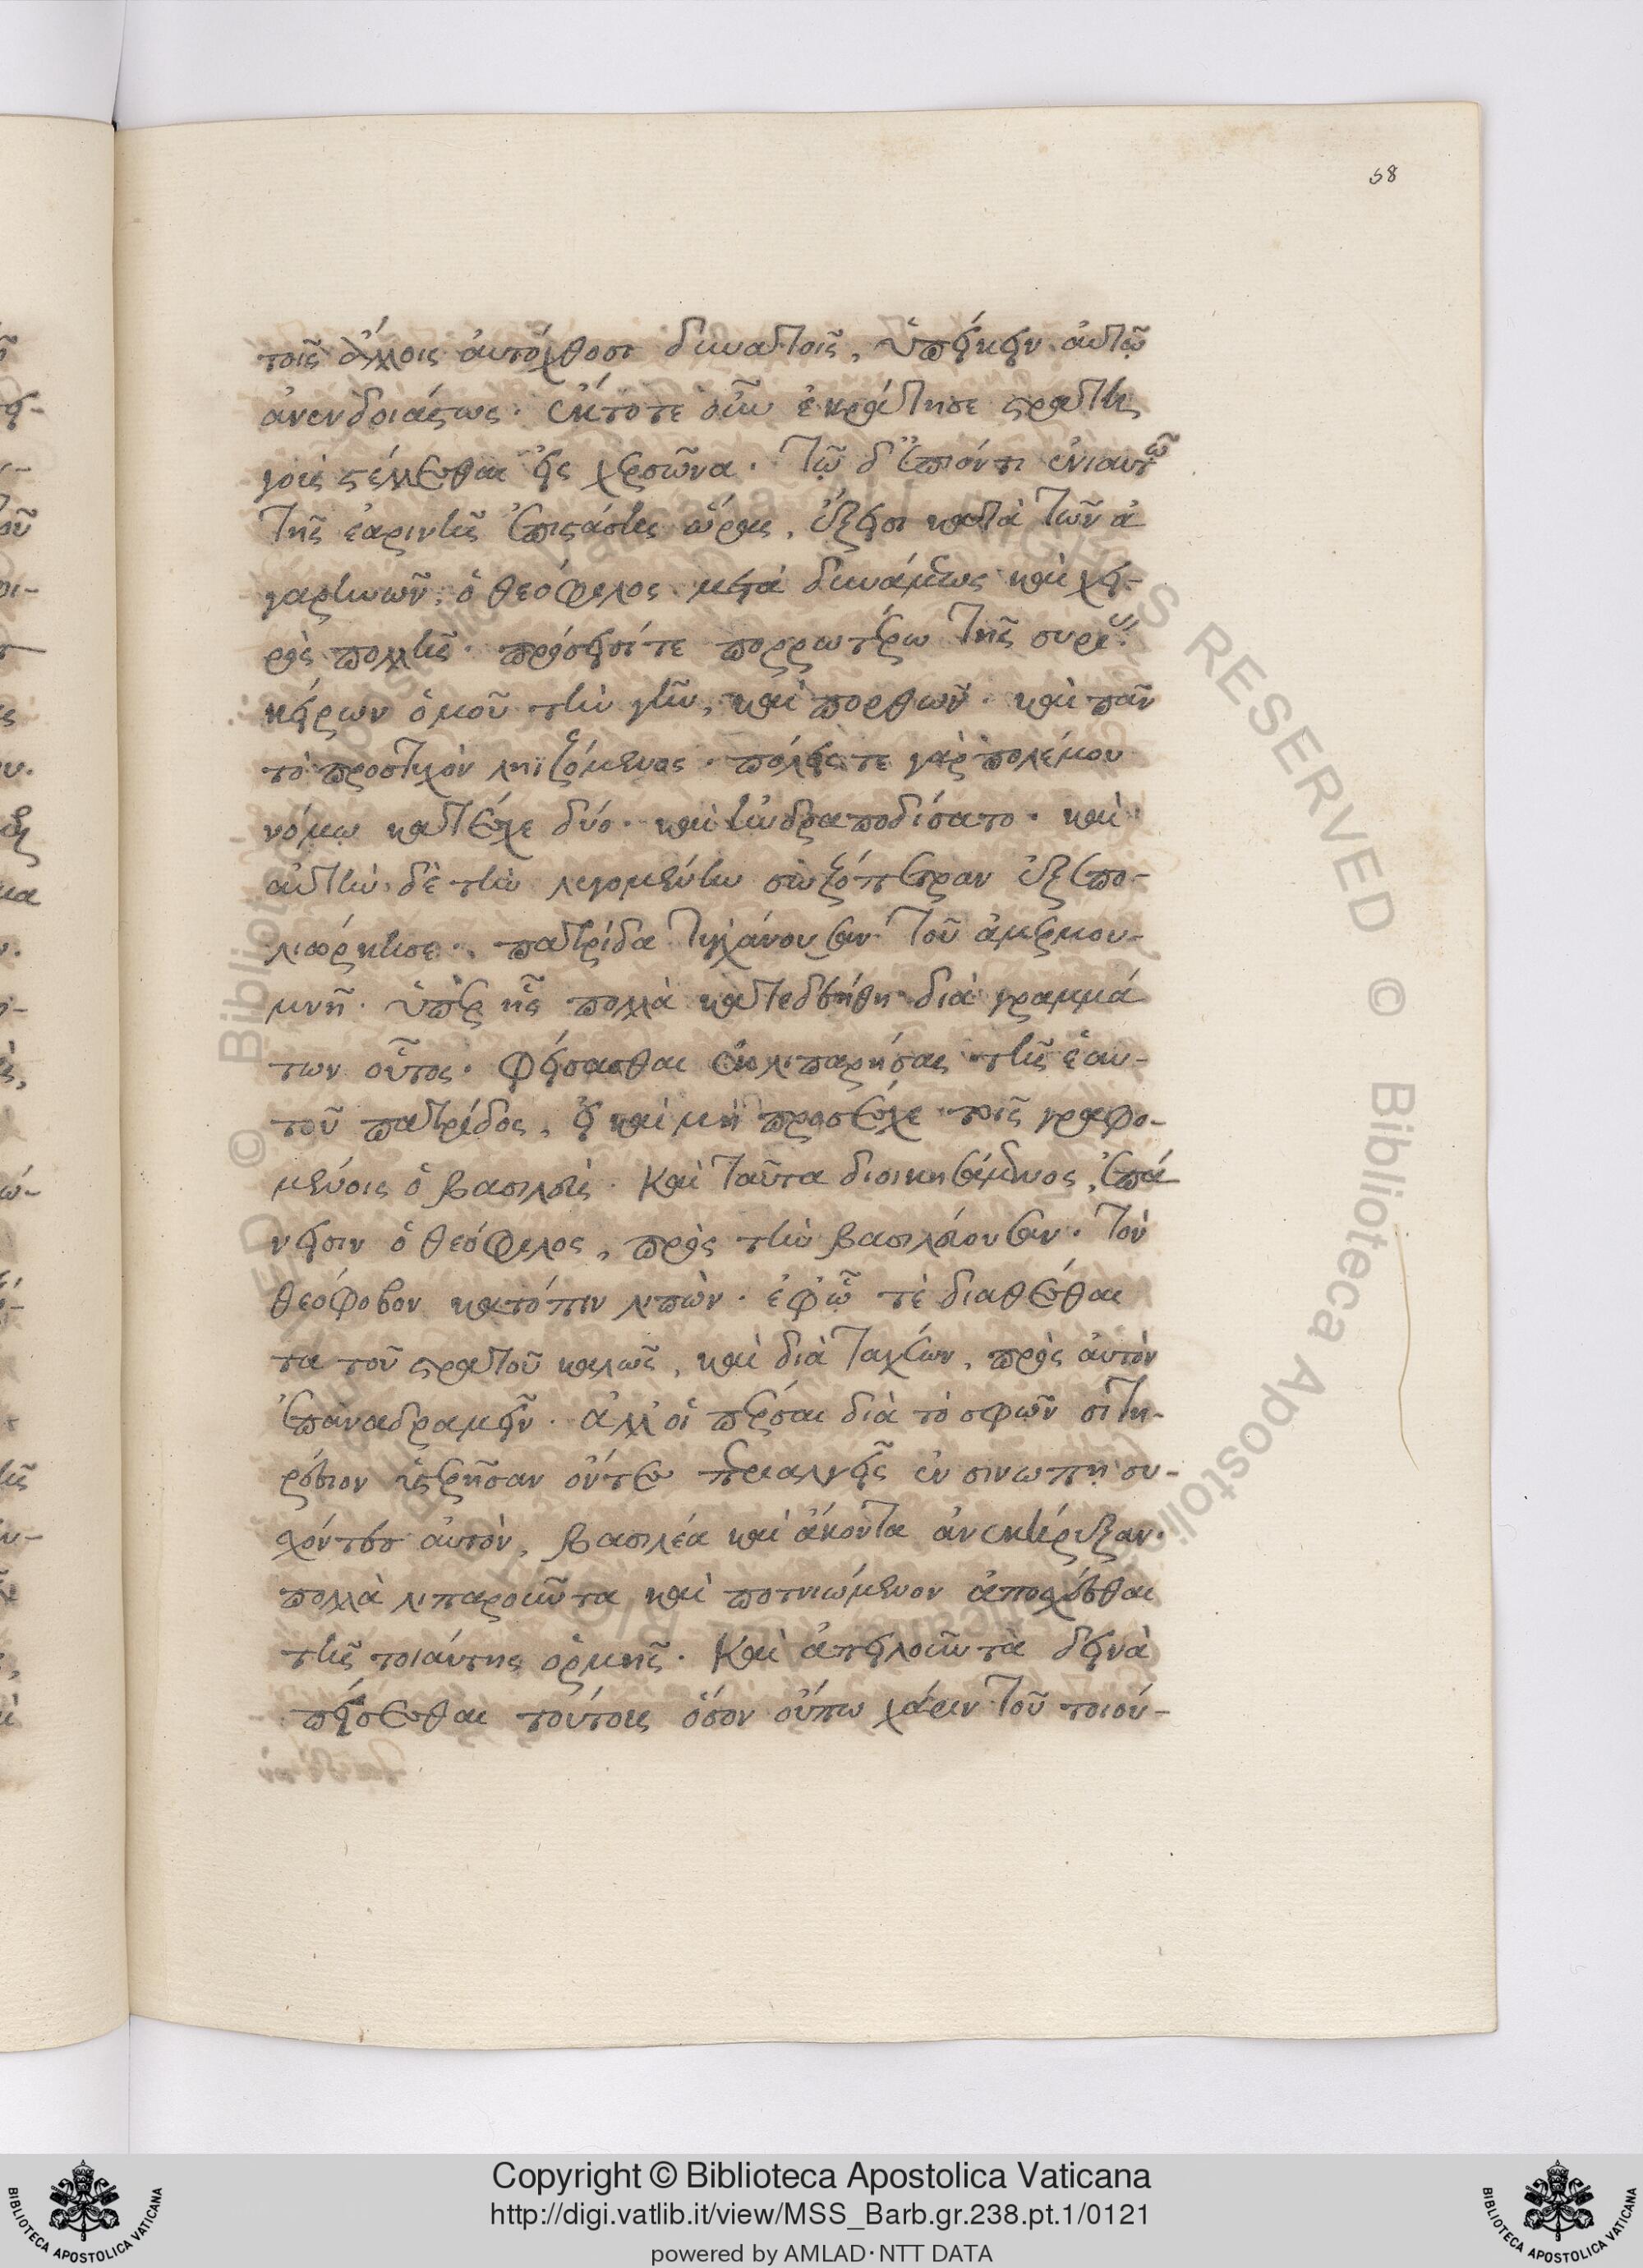 58
τοῖς ἄλλοις αὐτόχθοσι δυνατοῖς, ὑπείκειν αὐτῶ
ἀνενδοιάστως. ἔκτοτε οὖν ἐκράτησε στρατη
γοὺς στέλλεσθαι εἰς χερσῶνα. Τῶ δ' ἐπιόντι ἐνιαυτῶ
τῆς ἐαρινῆς ἐπιστάσης ὥρας, ἔξεισι κατὰ τῶν ἀ
γαρηνῶν, ὁ θεόφιλος μετὰ δυνάμεως καὶ χει-
ρὸς πολλῆς. πρόσεισί τε πορρωτέρω τῆς συρίας
κείρων ὁμοῦ τὴν γῆν, καὶ πορθῶν. καὶ πᾶν
τὸ προστυχὸν ληϊζόμενος. πόλεις τε γὰρ πολέμου
νόμω κατέσχε δύο. καὶ ἠνδραποδίσατο. καὶ
αὐτὴν δὲ τὴν λεγομένην σωζόπετραν ἐξεπο-
λιόρκησε. πατρίδα τυγχάνουσαν τοῦ ἀμερμου-
μνῆ. ὑπὲρ ἧς πολλὰ κατεδεήθη διὰ γραμμά
των οὗτος. φείσασθαι ἐκλιπαρήσας τῆς ἑαυ-
τοῦ πατρίδος, εἰ καὶ μὴ προσέσχε τοῖς γραφο-
μένοις ὁ βασιλεὺς. Καὶ ταῦτα διοικησάμενος, ἐπά
νεισιν ὁ θεόφιλος, πρὸς τὴν βασιλεύουσαν. τὸν
θεόφοβον κατόπιν λιπὼν. ἐφῶ τὲ διαθέσθαι
τα τοῦ στρατοῦ καλῶς, καὶ διὰ ταχέων, πρὸς αὐτὸν
ἐπαναδραμεῖν. ἀλλ' οἱ πέρσαι διὰ τὸ σφῶν σιτη-
ρέσιον ὑστερῆσαν ὄντες περιαλγεῖς ἐν σινώπη συ-
σχόντες αὐτὸν, βασιλέα καὶ ἄκοντα ἀνεκήρυξαν.
πολλὰ λιπαροῦντα καὶ ποτνιώμενον ἀποσχέσθαι
τῆς τοιαύτης ὁρμῆς. Καὶ ἀπειλοῦντα δεινὰ
πείσεσθαι τούτοις ὅσον οὔπω χάριν τοῦ τοιού-
Copyright © Biblioteca Apostolica Vaticana
http://digi.vatlib.it/view/MSS_Barb.gr.238.pt.1/0121
powered by AMLAD·NTT DATA
BIBLIOTECA APOSTOLICA VATICANA
BIBLIOTECA APOSTOLICA VATICANA